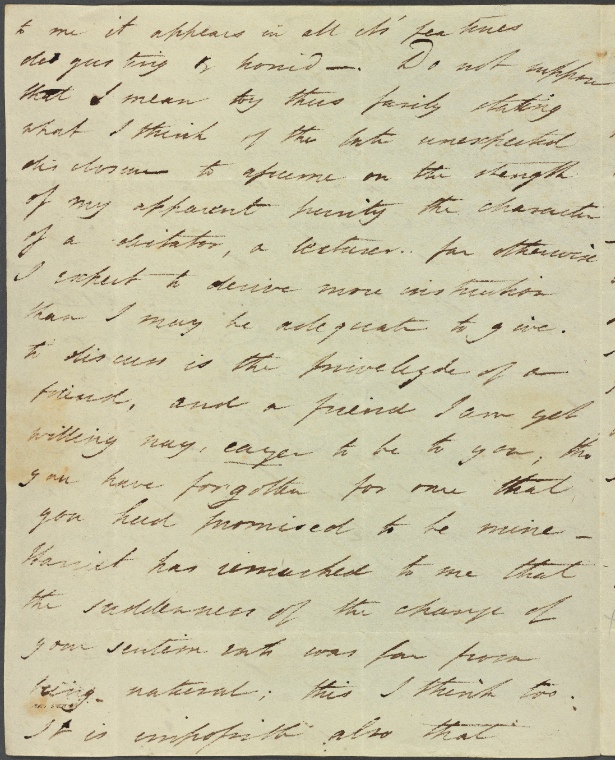 to me it appears in all its' features
disgusting & horrid—. Do not suppose
that I mean by thus freely stating
what I think of the late unexpected
disclosure to assume on the strength
of my apparent purity the character
of a dictator, a lecturer.. far otherwise
I expect to derive more instruction
than I may be adequate to give.
to discuss is the privelegde of a
friend, and a friend I am yet
willing nay, eager to be to you; tho
you have forgotten for once that
you had promised to be mine—
Harriet has remarked to me that
the suddenness of the change of
your sentiments was far from
being natural; this I think too.
It is impossible also that